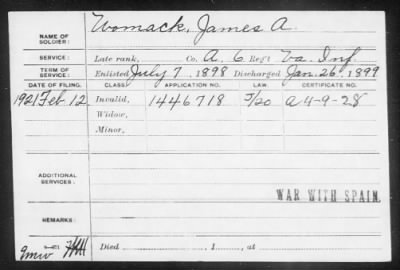 NAME OF SOLDIER: Womack, James A.
SERVICE: Late rank, Co. A. 6 Reg't Va. Inf.
TERM OF SERVICE: Enlisted July 7, 1898 Discharged Jan. 26, 1899
DATE OF FILING. CLASS. APPLICATION NO. LAW. CERTIFICATE NO.
1921 Feb. 12 Invalid, 1446718 J/20 A 4-9-28
Widow,
Minor,
ADDITIONAL SERVICES:
WAR WITH SPAIN.
REMARKS:
Died , 1 , at